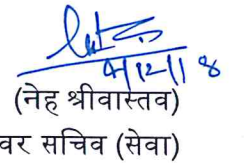 4/12/18
(नेह श्रीवास्तव)
वर सचिव (सेवा)